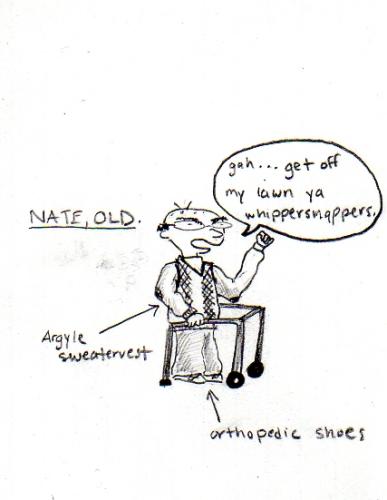 gah... get off
my lawn ya
whippersnappers.
NATE, OLD.
Argyle
sweatervest
orthopedic shoes